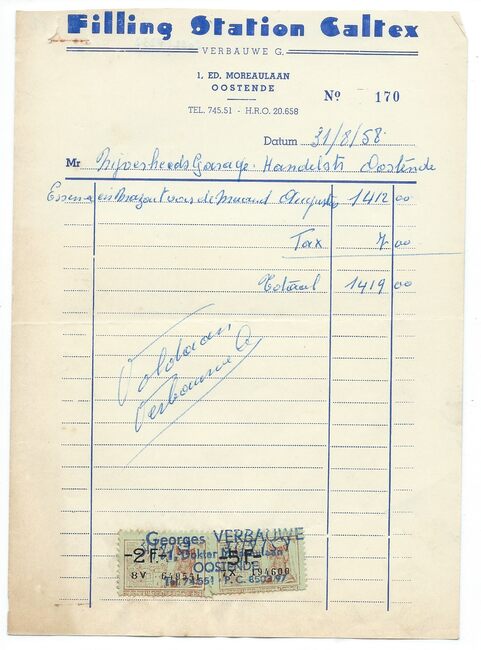 Filling Station Caltex
VERBAUWE G.
1, ED. MOREAULAAN
OOSTENDE
Nº 170
TEL. 745.51 - H.R.O. 20.658
Datum 31/8/58
Mr Nijverheids Garage. Handelstr Oostende
Essence en Mazout voor de Maand Augustus 1412 00
Tax 7 00
Totaal 1419 00
Voldaan
Verbauwe G
Georges VERBAUWE
1, Dokter Moreaulaan
OOSTENDE
-2F- -5F-
8V 94600